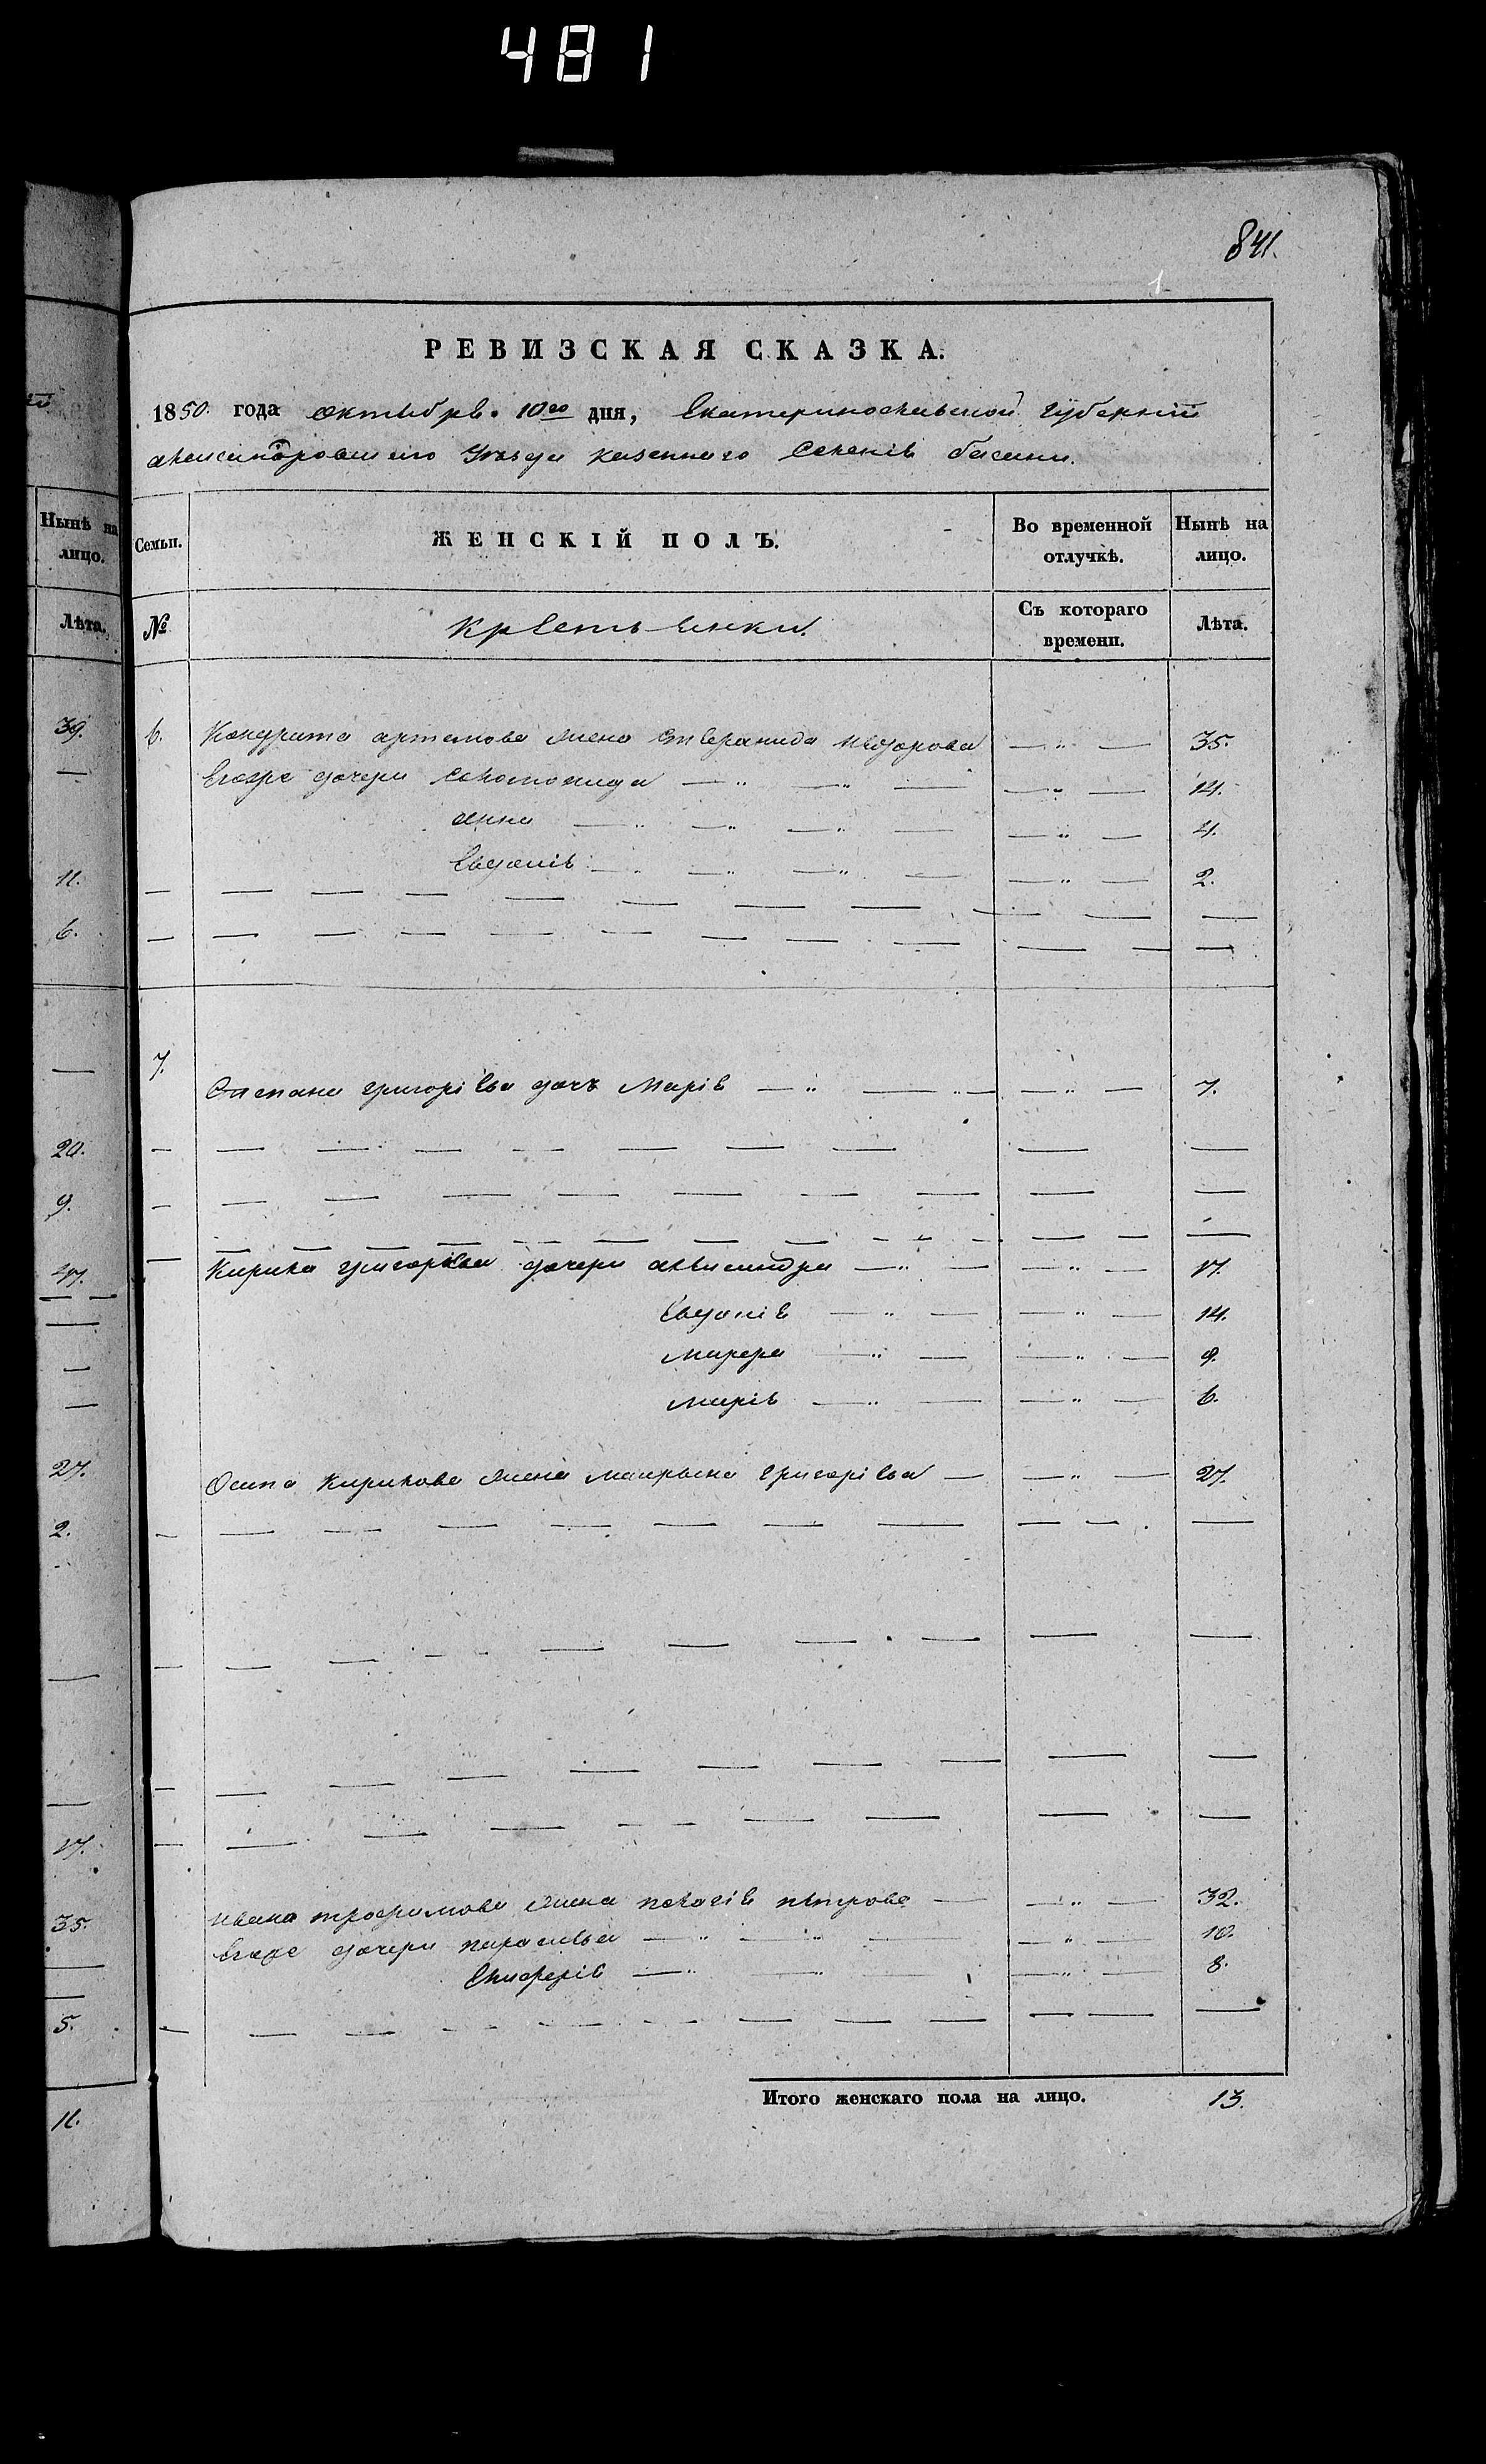 481
841.
1
РЕВИЗСКАЯ СКАЗКА.
1850 года октября 10го дня, Екатеринославской губернии
александровского уезда казенного Селенія басани.
Нынѣ на лицо.
Семьи.
ЖЕНСКІЙ ПОЛЪ.
Во временной отлучкѣ.
Нынѣ на лицо.
Лѣта.
№
Крестьянки.
Съ котораго времени.
Лѣта.
39.
6. Кондрата артемова жена Степанида Федорова — „ — 35.
Егоже дочери Соломонида — „ — „ — — „ — 14.
анна — „ — „ — „ — — „ — 4.
11.
Евдокія — „ — „ — „ — — „ — 2.
6.
7.
Степана григорієва дочь Марія — „ — „ — — „ — 7.
20.
9.
47.
Кирила григорієва дочери александра — „ — — „ — 17.
Евдокія — „ — — „ — 14.
Марфа — „ — — „ — 9.
марія — „ — — „ — 6.
27.
Осипа Кирилова жена маирьяна григорієва — — „ — 27.
2.
17.
ивана трофимова жена пелагія петрова — — „ — 32.
35.
Егоже дочери парасковья — „ — „ — — „ — 10.
Елисферія — „ — „ — — „ — 8.
5.
Итого женскаго пола на лицо. 13.
11.